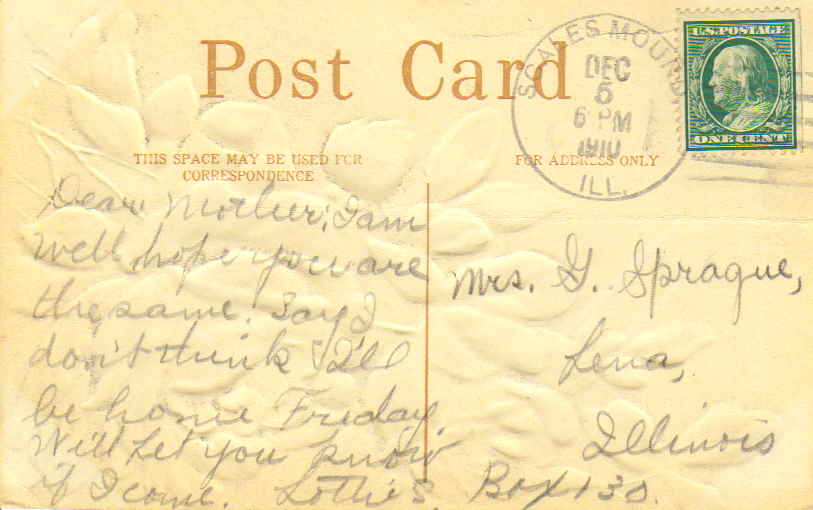 Post Card
THIS SPACE MAY BE USED FOR
CORRESPONDENCE
FOR ADDRESS ONLY
SCALES MOUND
DEC
5
6 PM
1910
ILL.
U.S. POSTAGE
ONE CENT
Dear Mother; I am
well, hope you are
the same. Say I
don't think I'll
be home Friday,
Will let you know
if I come. Lottie S.
Mrs. G. Sprague,
Lena,
Illinois
Box 130.